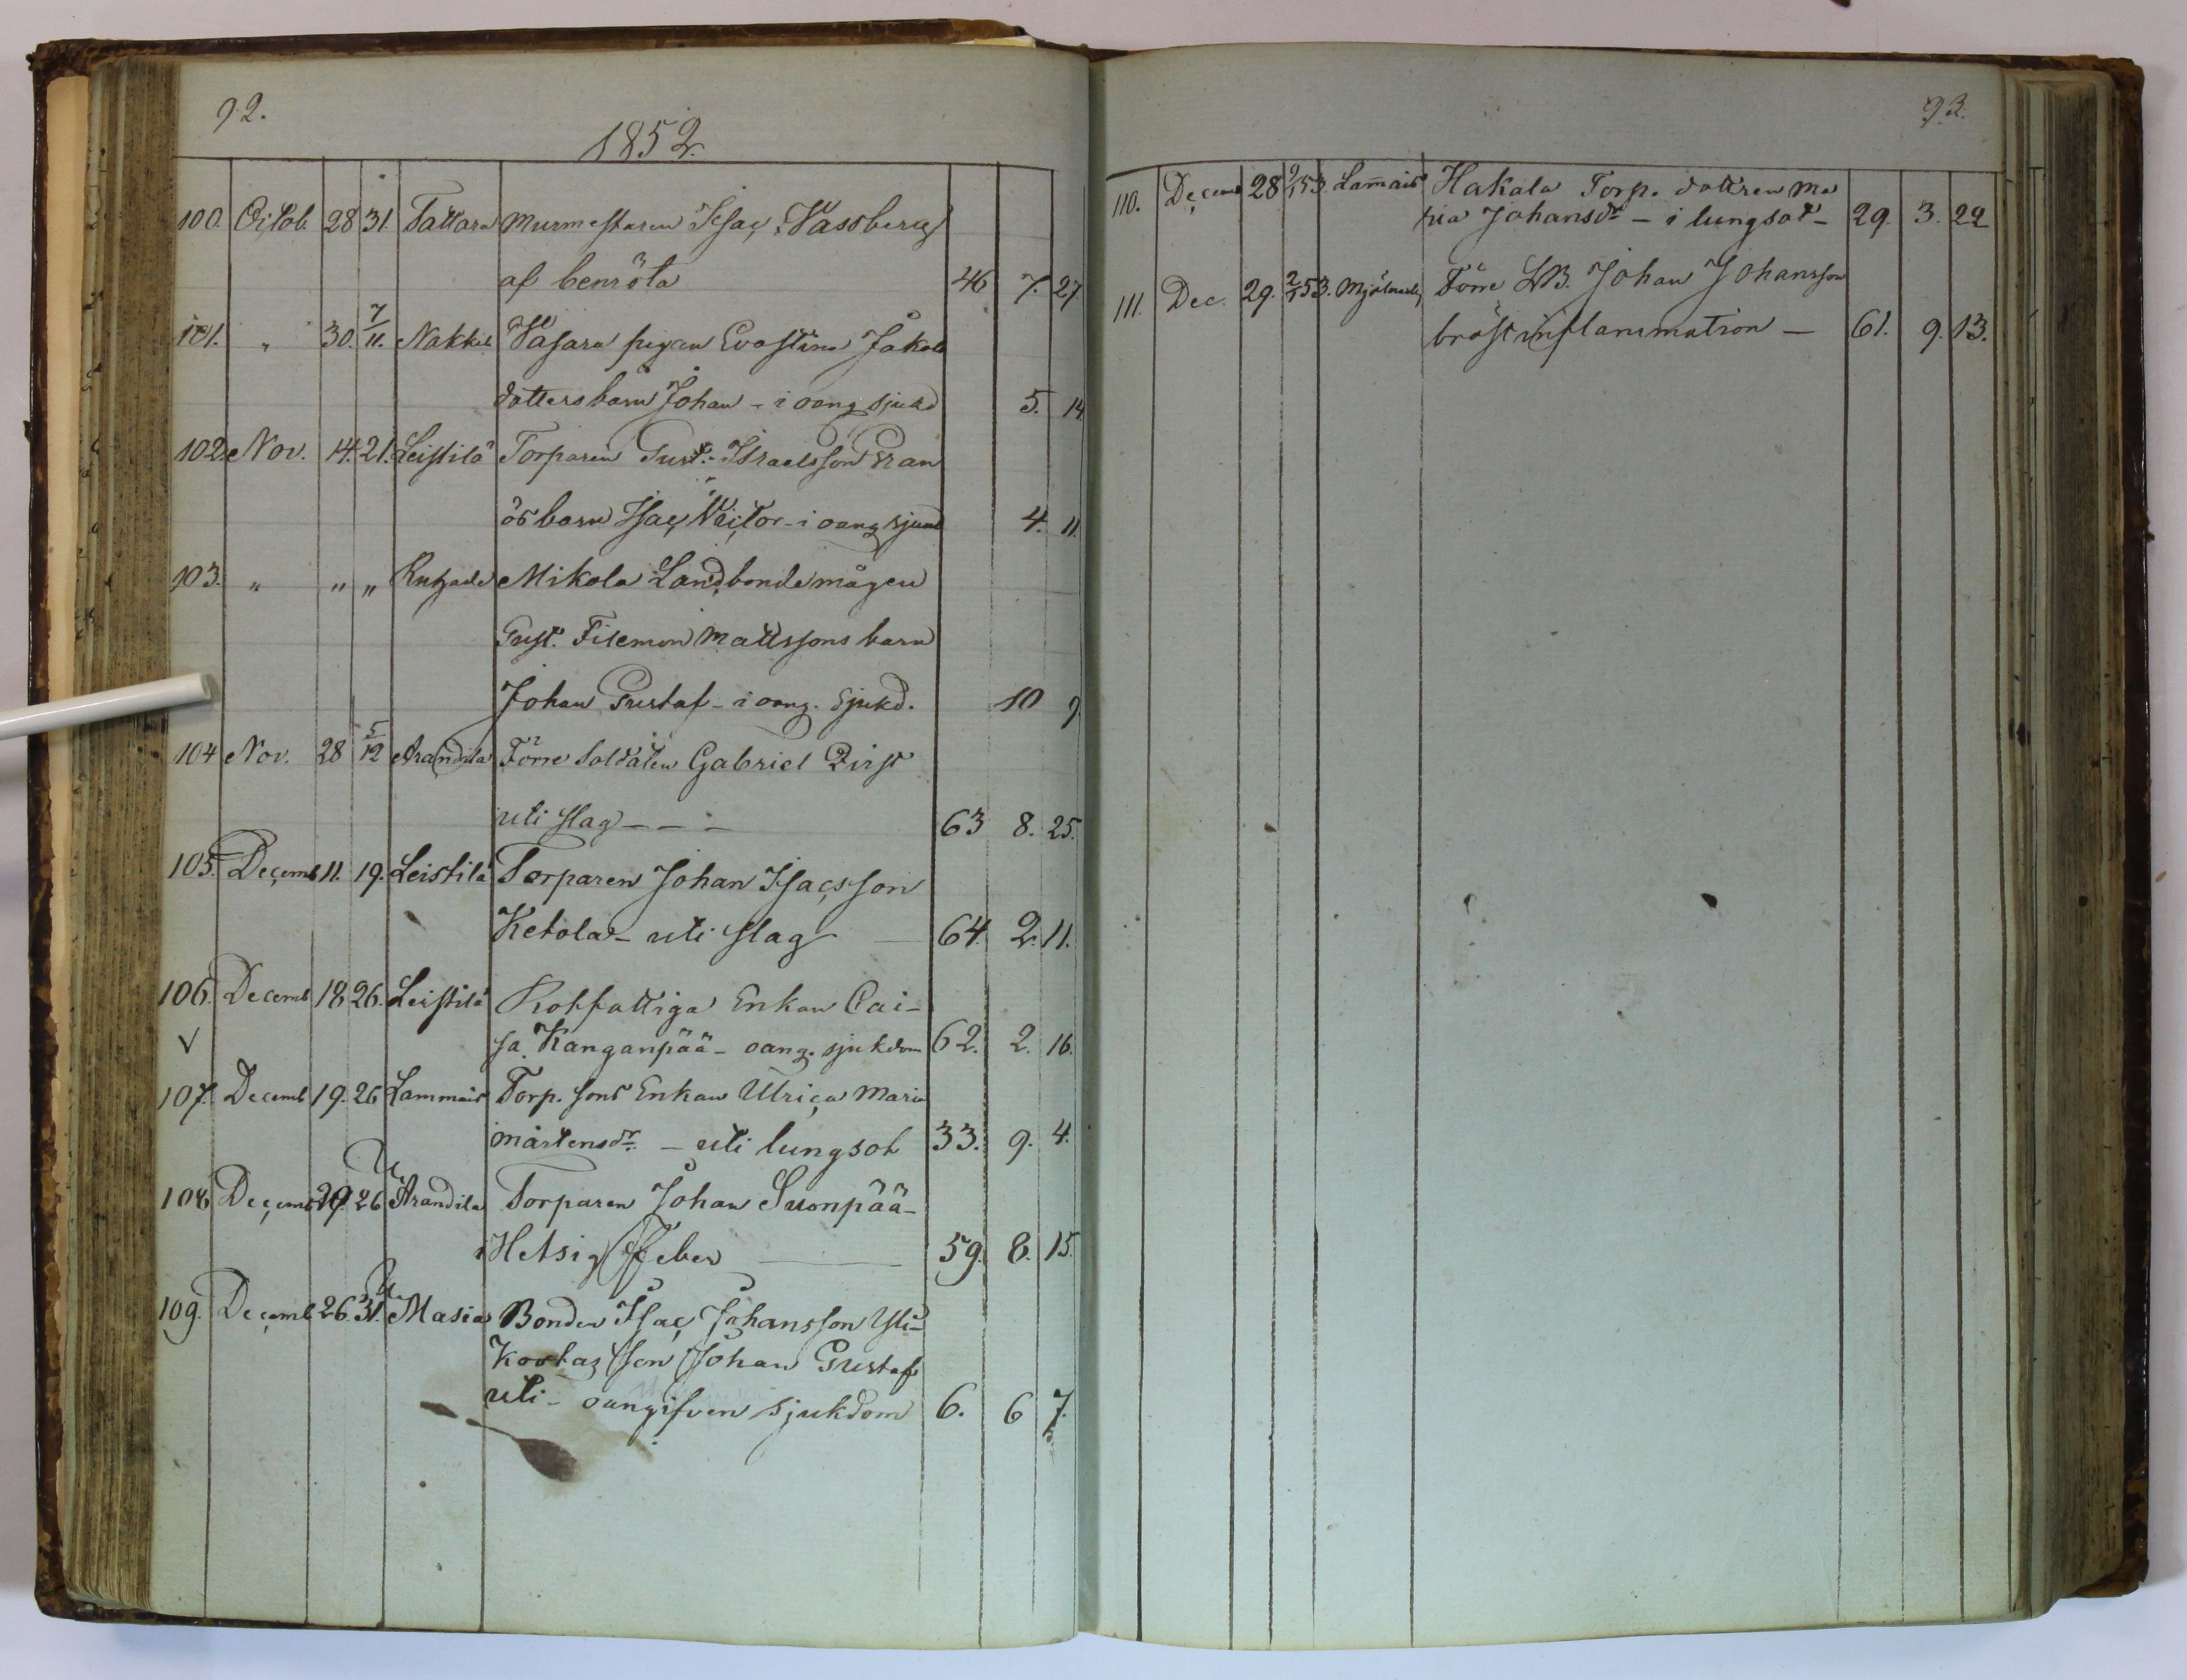 92.
1852.
100. Octob. 28 31. Tattara Murmestaren Isac Wassberg
af benröta 46 7. 27.
101. " 30. 7/11. Nakkil Wasara pigan Evastina Jakobs
dotters barn Johan - i oang sjukd 5. 14
102. Nov. 14. 21. Leistilä Torparen Gust: Israelsson
ös barn Isac Victor - i oang sjukd 4. 11.
103. " " " Mikola Landbonde mågen
Gust. Filemon Mattssons barn
Johan Gustaf - i oang. sjukd. 10 9.
104 Nov. 28 5/12 Arandila Förre Soldaten Gabriel
uti slag - - - 63 8. 25.
105. Decemb 11. 19. Leistilä Torparen Johan Isacsson
Ketola - uti slag - 64. 2. 11.
106. Decemb 18 26. Leistilä Rotfattiga Enkan Cai-
sa Kanganpää - oang. sjukdom 62. 2. 16.
107. Decemb 19. 26 Lammais Torp. sons Enkan Ulrica Maria
Mårtensdr - uti lungsot 33. 9. 4.
108 Decemb 26 Arandila Torparen Johan Suonpää -
i Hetsig Feber 59. 8. 15.
109. Decemb 26. 31. Masia Bonden Isac Johansson Yli-
Kovkas son Johan Gustaf
uti - oangifven sjukdom 6. 6 7.
93.
110. Decemb 28 2/1 53 Lamais Hakala Torp. dottren Ma
ria Johansdr - i lungsot - 29. 3. 22
111. Dec. 29. 2/1 53. Förre LB. Johan Johansson
bröstinflammation - 61. 9. 13.